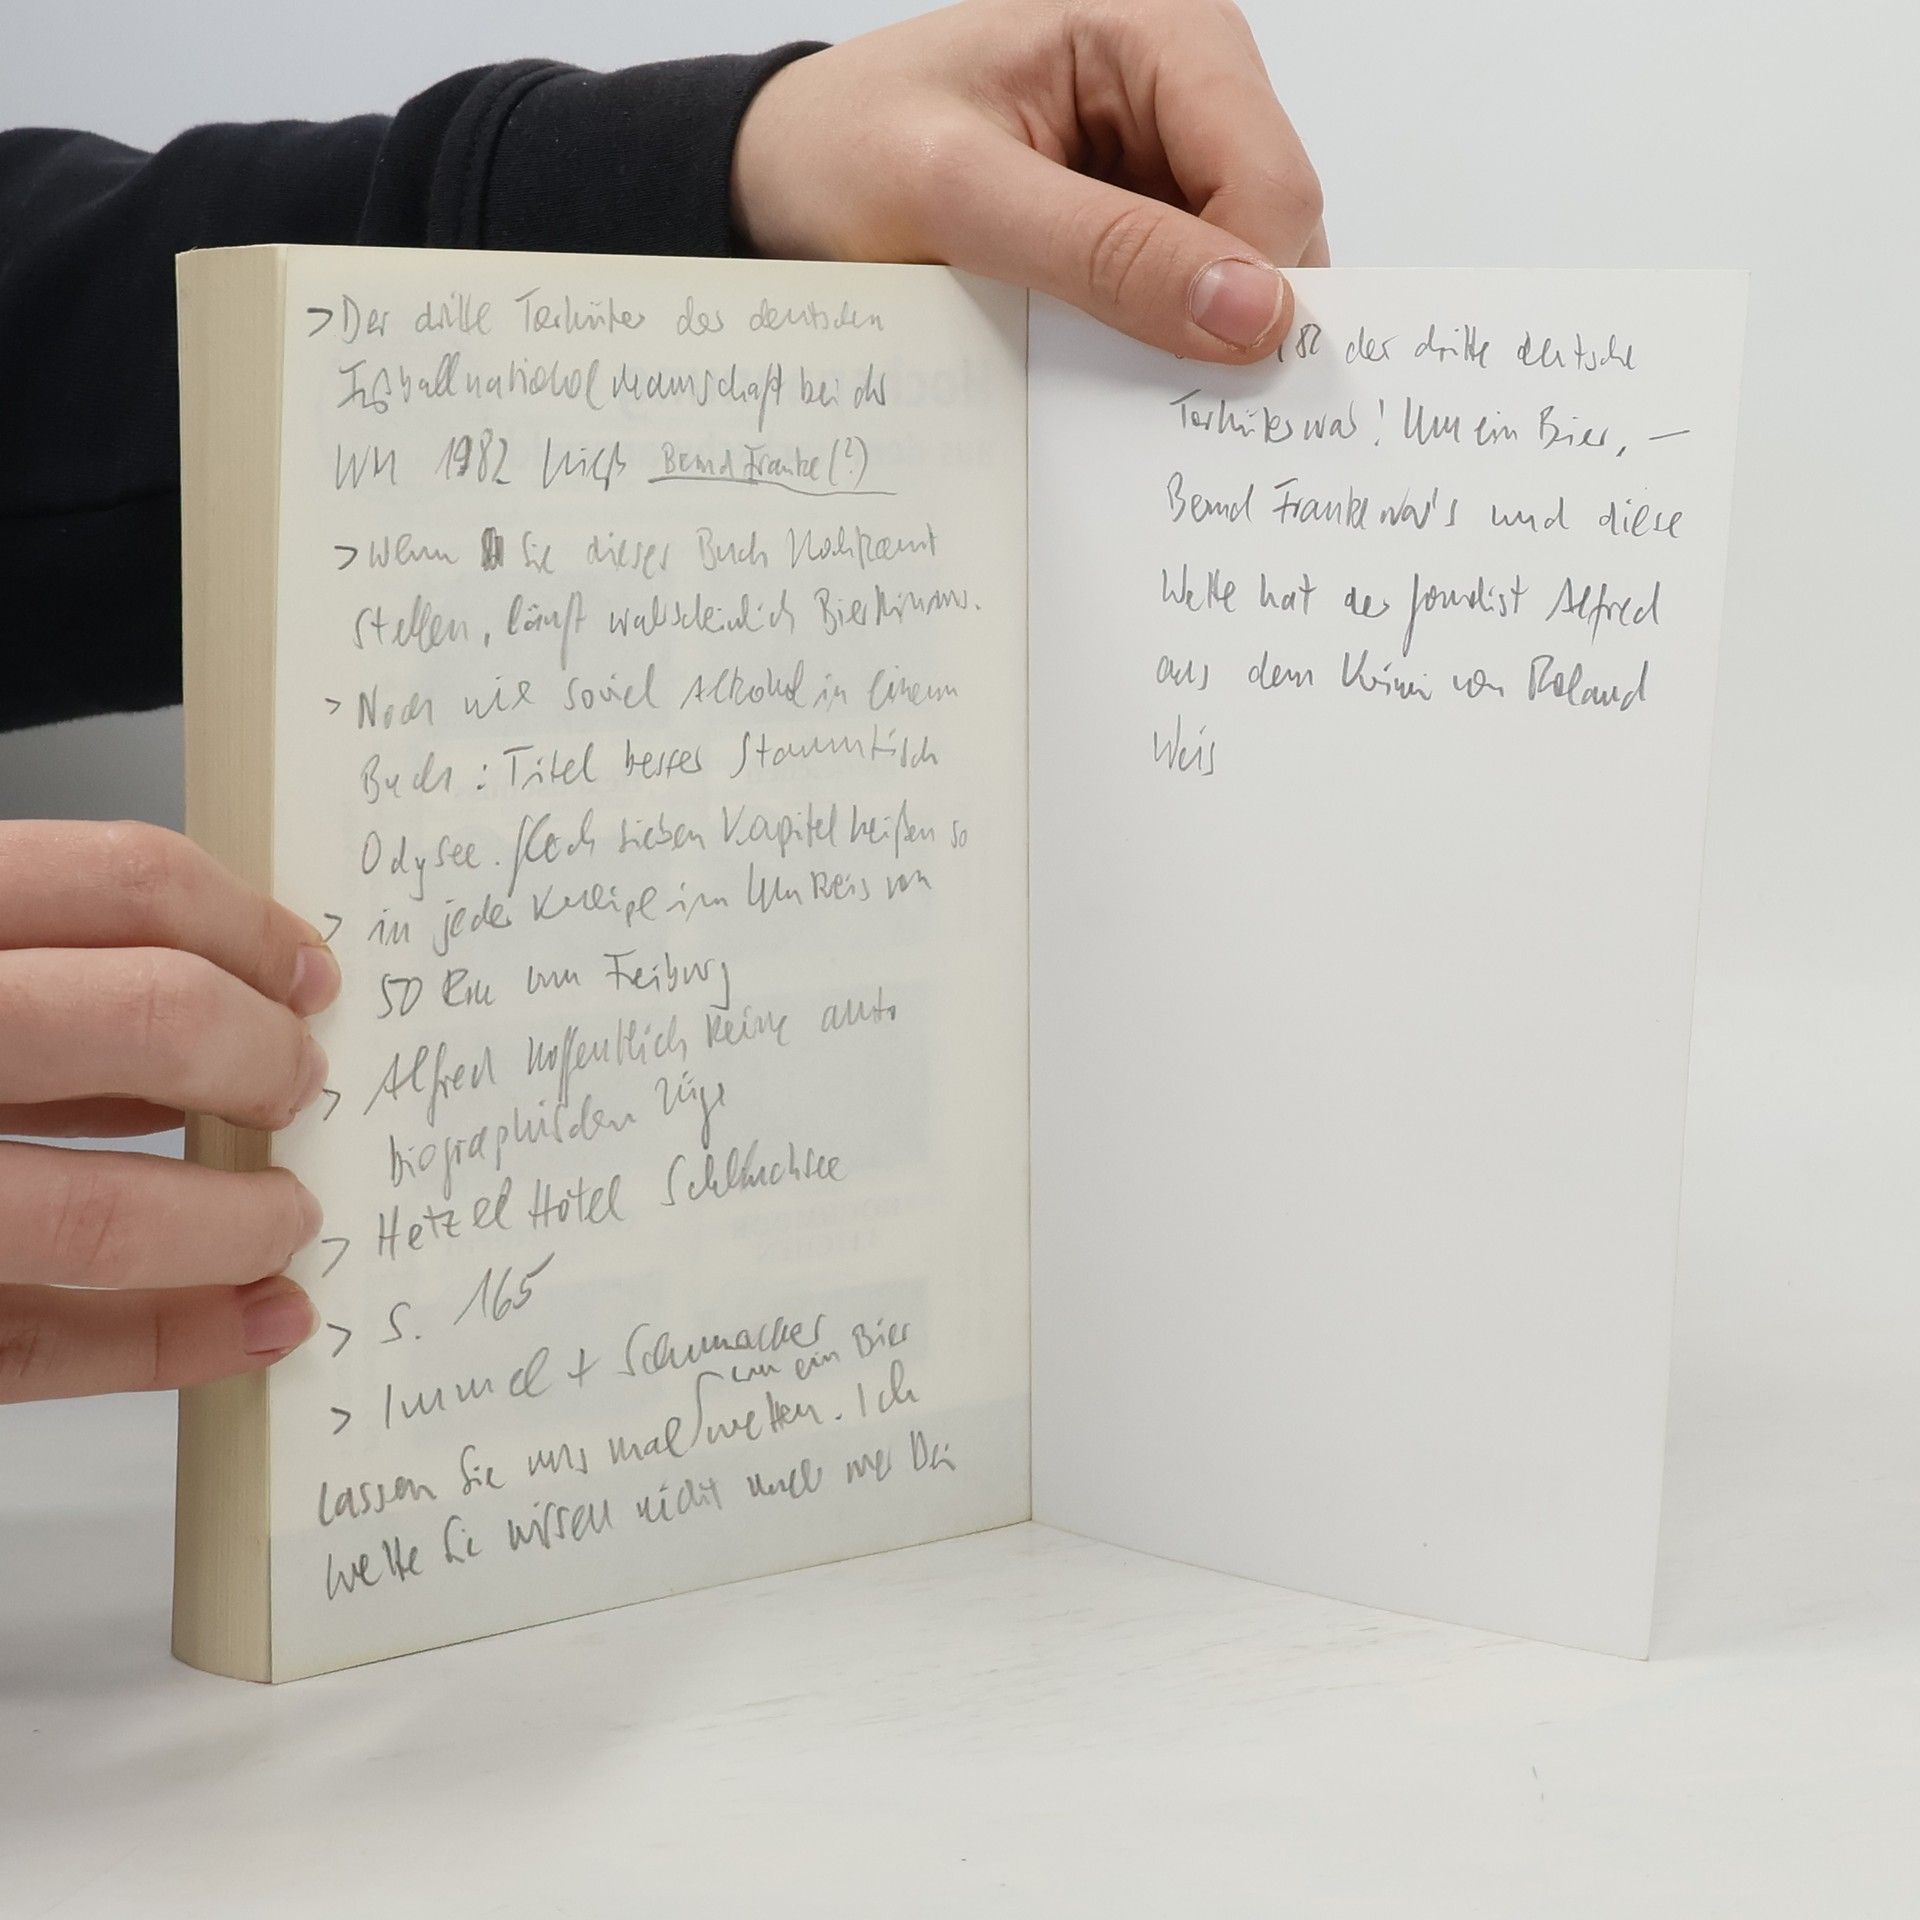 > Der dritte Torhüter der deutschen
Fußballnationalmannschaft bei der
WM 1982 hieß Bernd Franke (?)
> Wenn Sie dieses Buch
stellen, läuft wahrscheinlich
> Noch nie soviel Alkohol in einem
Buch : Titel besser Stammtisch
Odysee. sieben Kapitel heißen so
> in jeder Kneipe im Umkreis von
50 km um Freiburg
> Alfred hoffentlich keine auto
biographischen Züge
> Hetzel Hotel Schluchsee
> S. 165
> Immel + Schumacher
um ein Bier
lassen Sie uns mal wetten. Ich
wette Sie wissen nicht mehr wer
82 der dritte deutsche
Torhüter war! Um ein Bier, —
Bernd Franke war's und diese
Wette hat der Alfred
aus dem Krimi von Roland
Weis